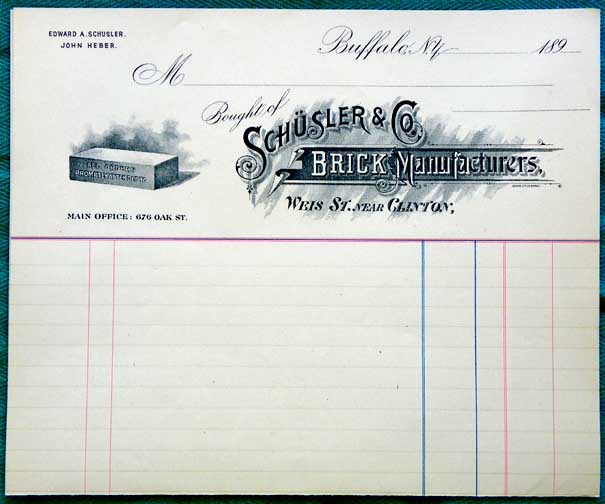 EDWARD A. SCHUSLER.
JOHN HEBER.
Buffalo, N.Y. 189
M
Bought of
SCHÜSLER & CO.
BRICK Manufacturers,
WEIS ST. NEAR CLINTON,
ALL ORDERS
PROMPTLY ATTENDED TO
MAIN OFFICE: 676 OAK ST.